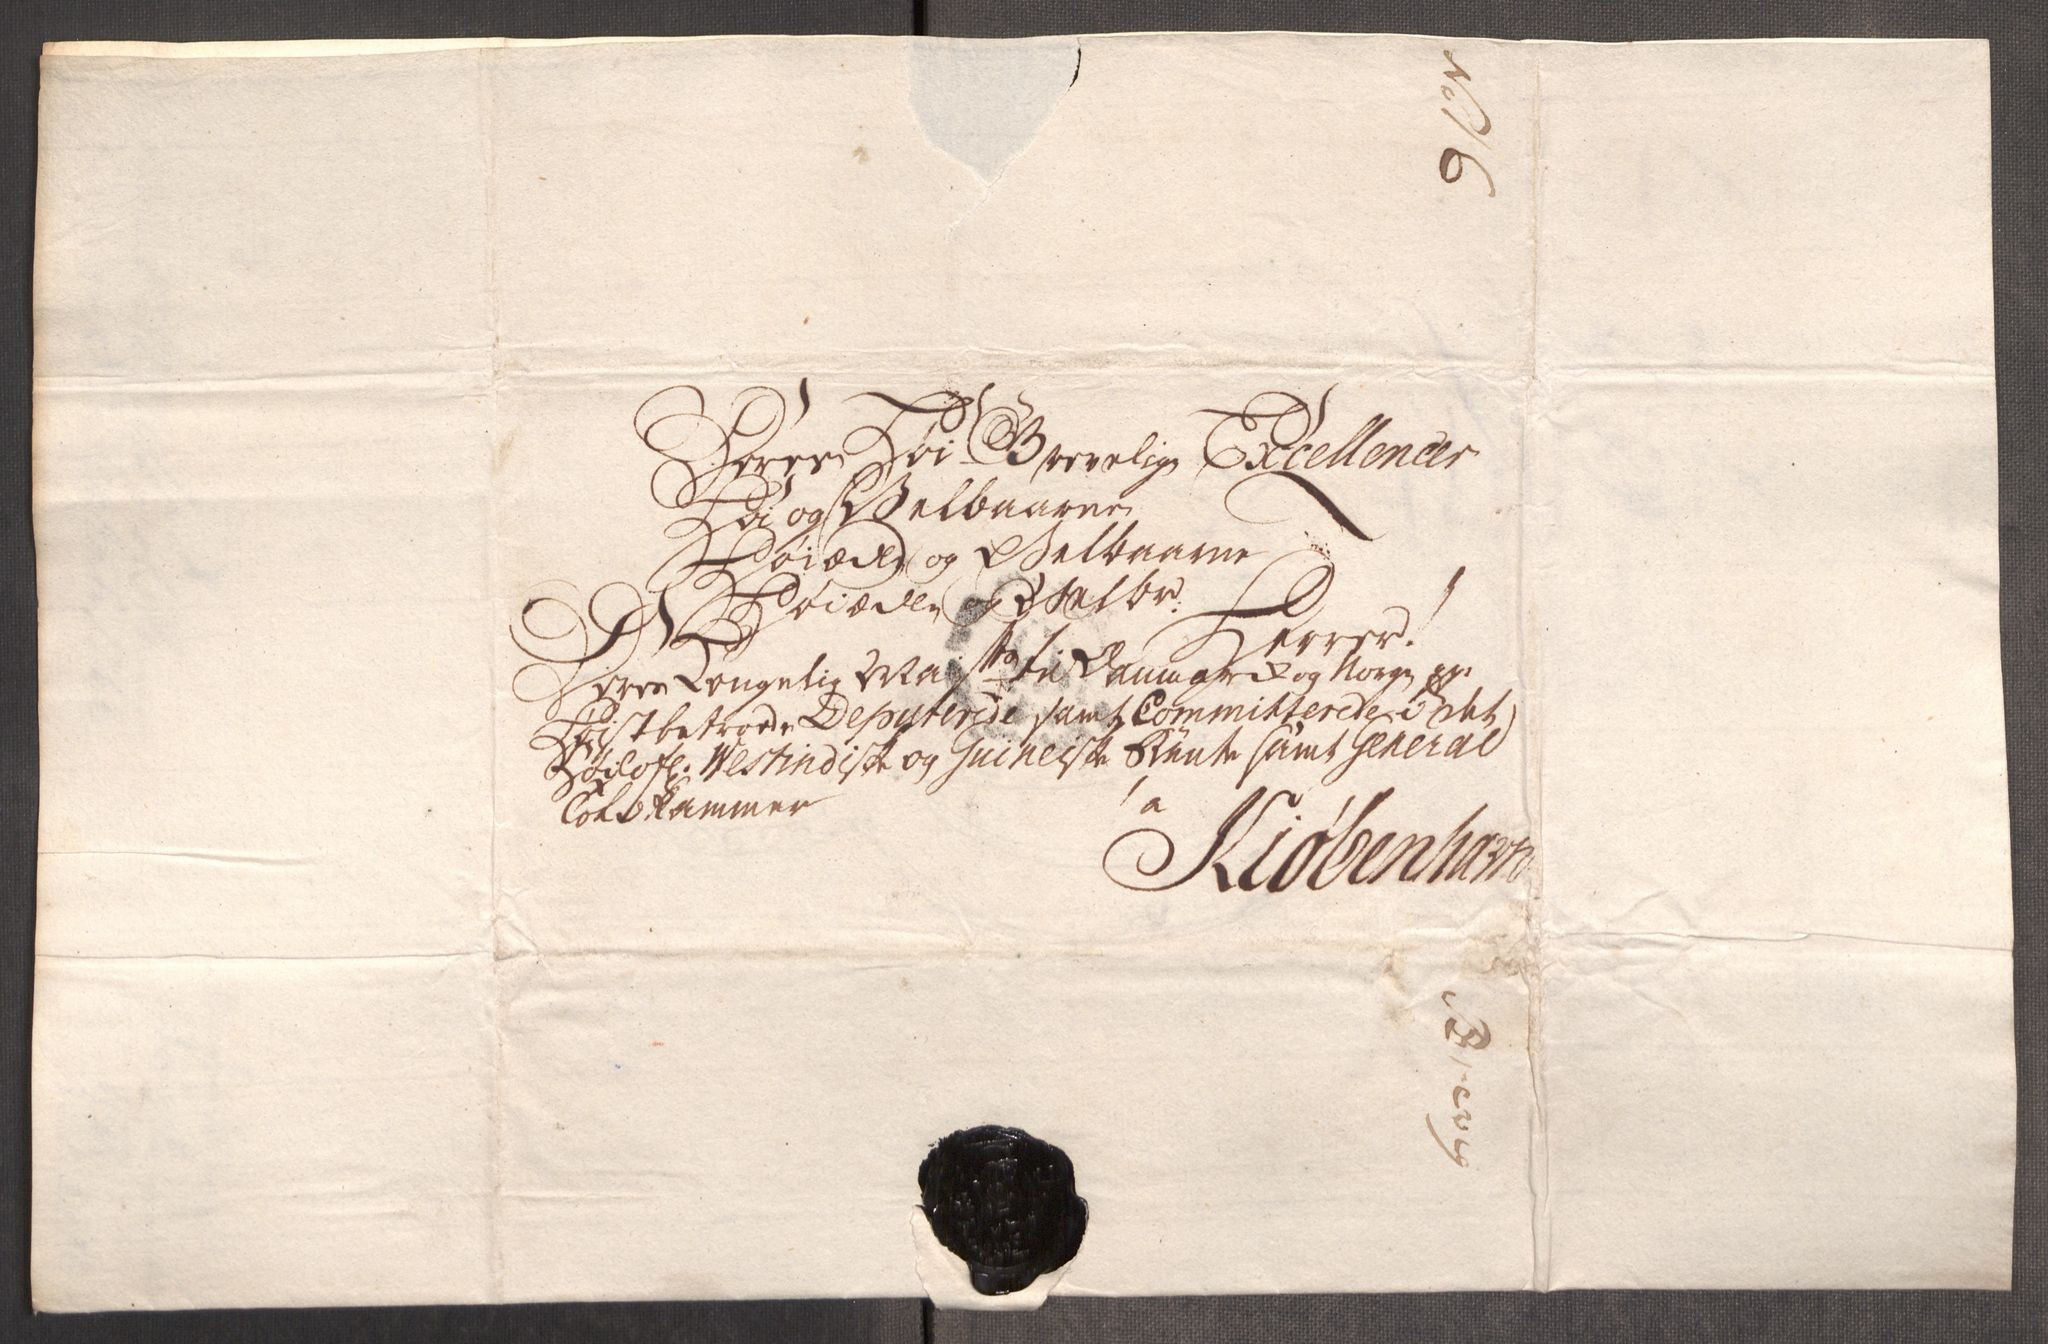 No 6
Deres Høi Grevelige Excellencer
Høi og Velbaarne
Høiædle og Velbaarne
Høiædle og Velbr:
Herrer!
Deres Kongelig Mayst: til Danmark og Norge pp:
Høistbetroede Deputerede samt Committerede i det
Høilofl: Westindiske og Guineiske Rente samt General
Told Kammer
a
Kiøbenhavn